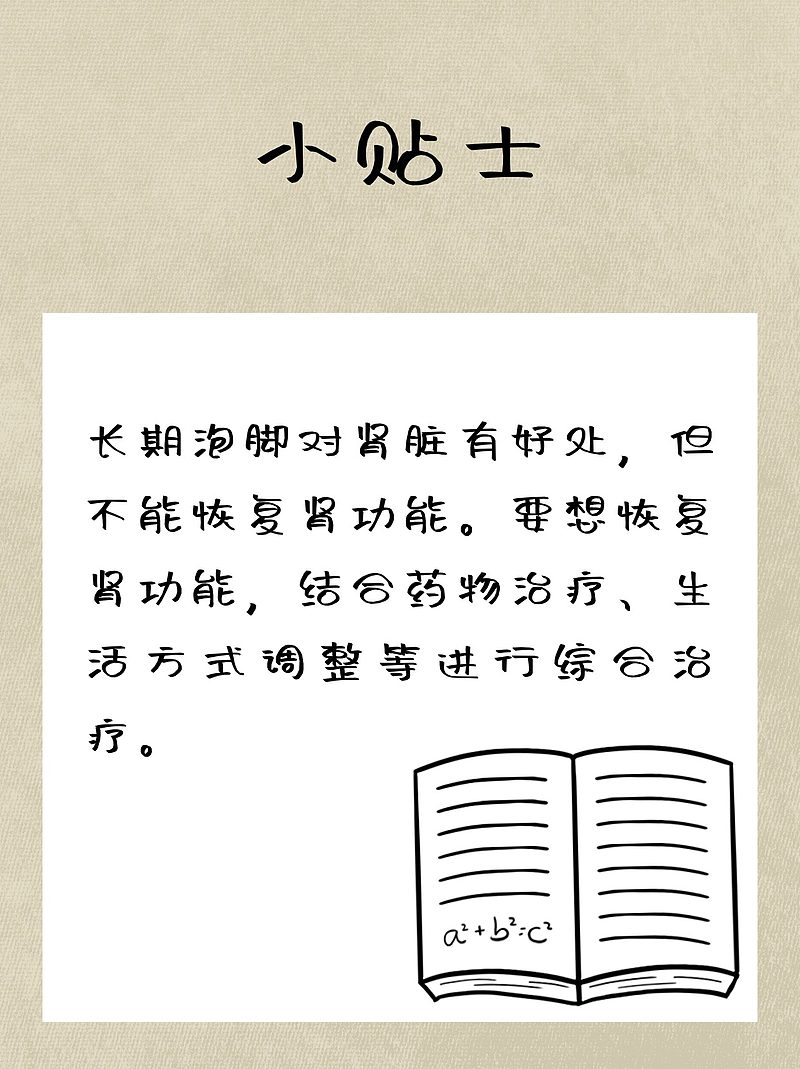 小贴士
长期泡脚对肾脏有好处，但
不能恢复肾功能。要想恢复
肾功能，结合药物治疗、生
活方式调整等进行综合治
疗。
a²+b²=c²